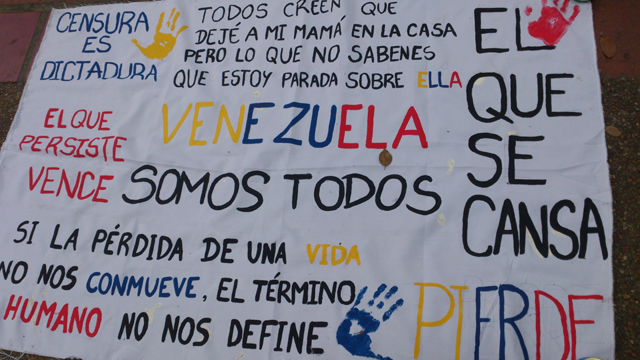 CENSURA
ES
DICTADURA
TODOS CREEN QUE
DEJÉ A MI MAMÁ EN LA CASA
PERO LO QUE NO SABENES
QUE ESTOY PARADA SOBRE ELLA
EL QUE
PERSISTE
VENCE
VENEZUELA
SOMOS TODOS
SI LA PÉRDIDA DE UNA VIDA
NO NOS CONMUEVE, EL TÉRMINO
HUMANO NO NOS DEFINE
EL
QUE
SE
CANSA
PIERDE